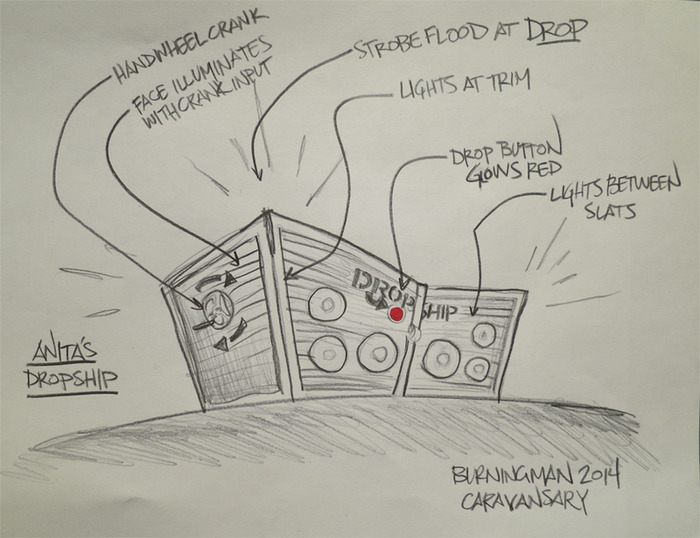 HANDWHEEL CRANK
FACE ILLUMINATES
WITH CRANK INPUT
STROBE FLOOD AT DROP
LIGHTS AT TRIM
DROP BUTTON
GLOWS RED
LIGHTS BETWEEN
SLATS
DROP
SHIP
ANITA'S
DROPSHIP
BURNINGMAN 2014
CARAVANSARY